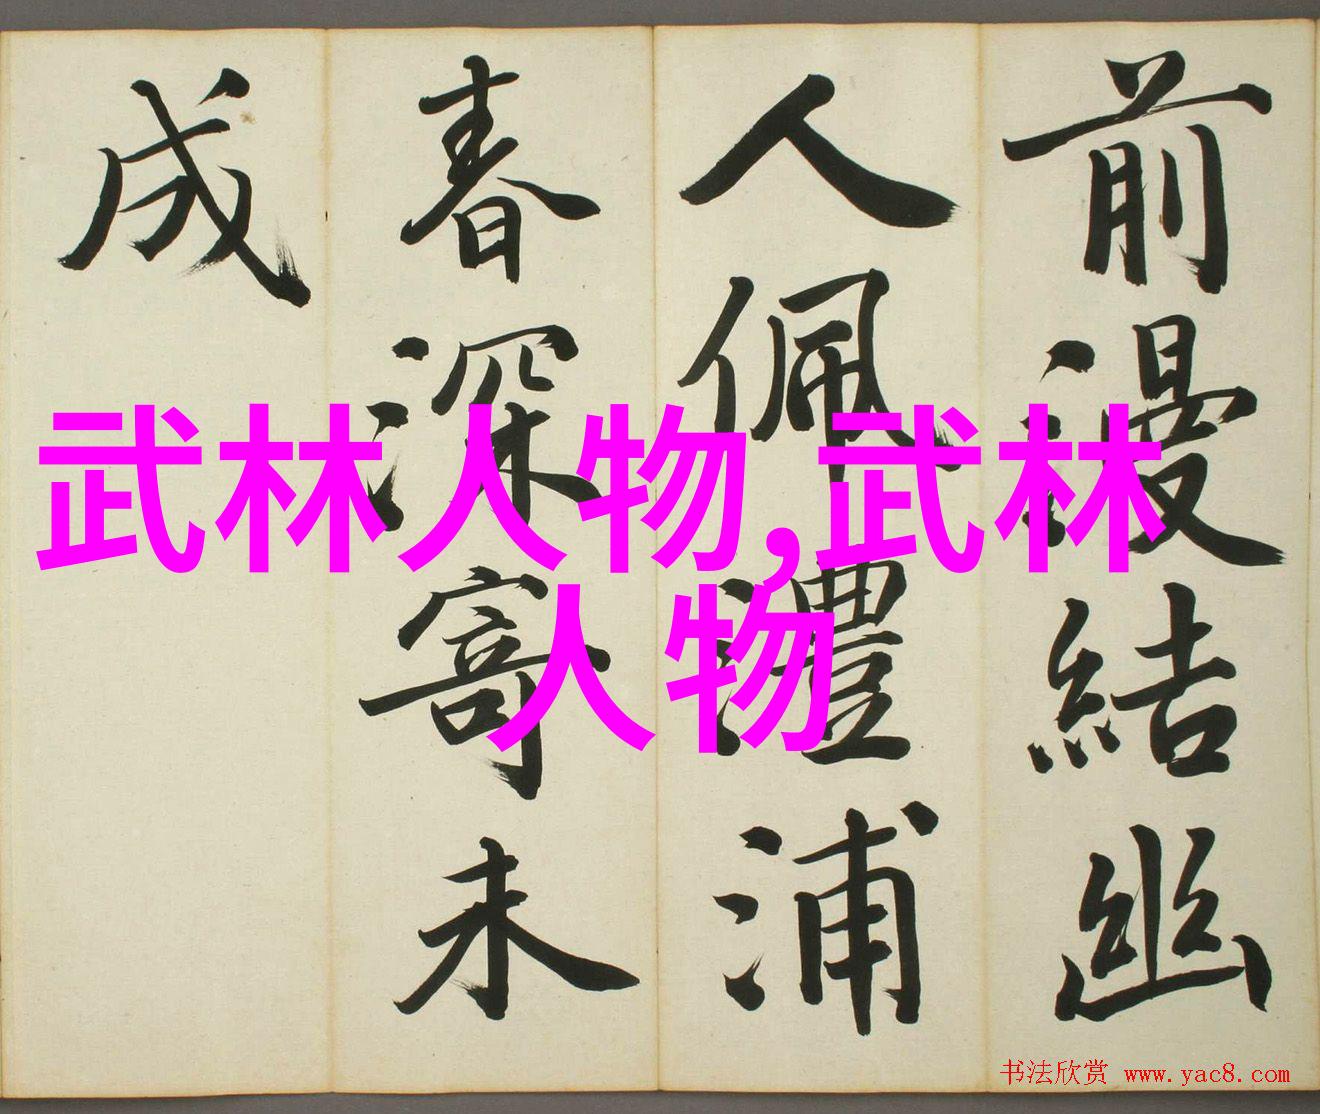 前漫結幽
人佩澧浦
春深寄未
成
武林人物,武林
人物
书法欣赏 www.yac8.com